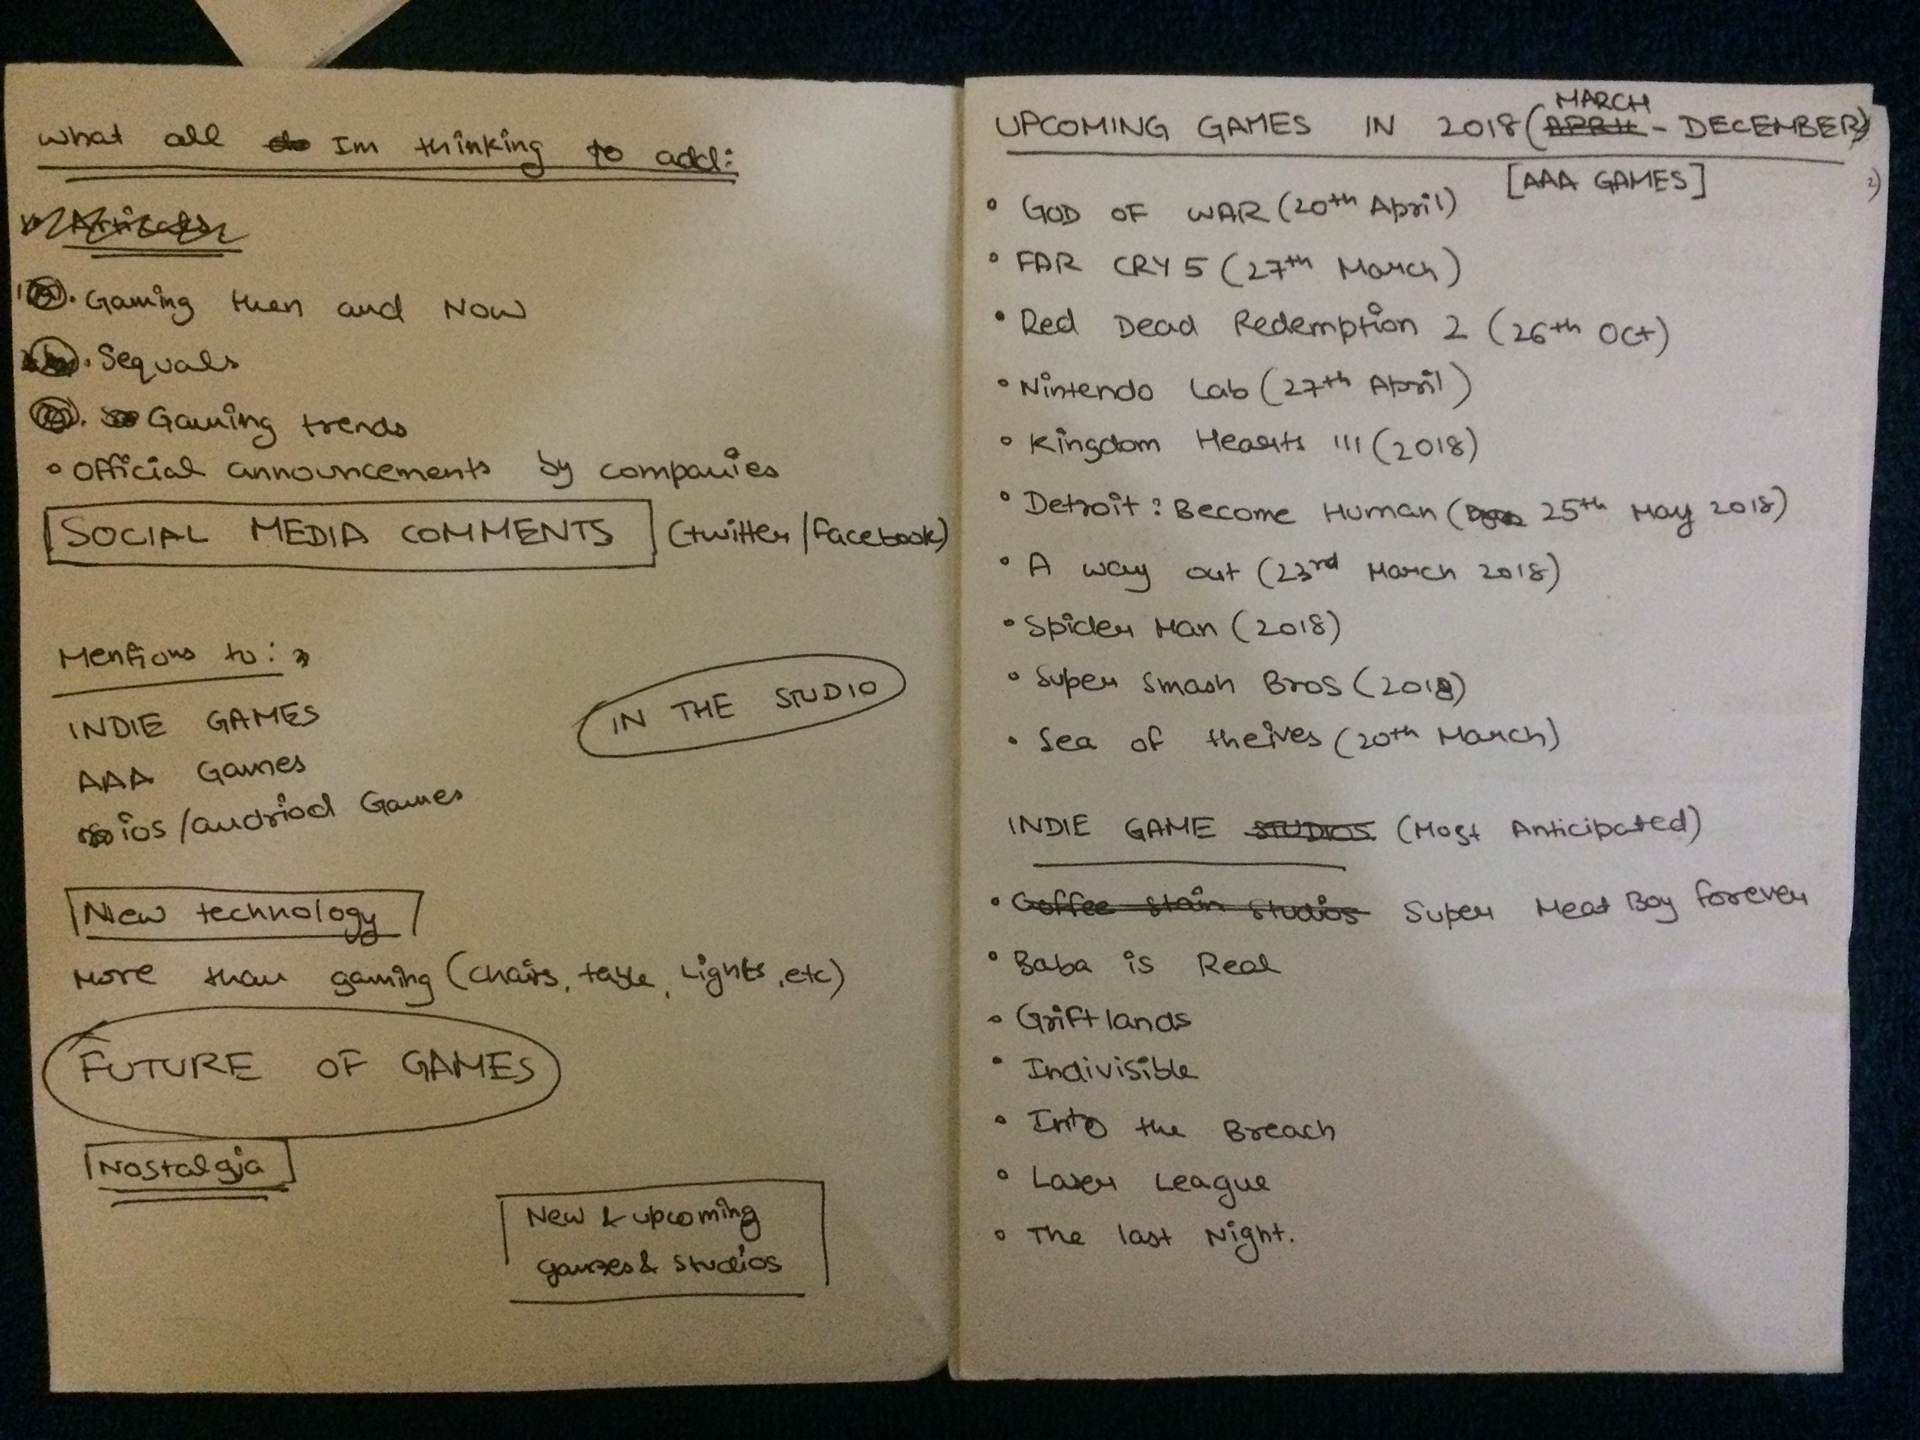 What all Im thinking to add:
Gaming then and Now
Sequals
Gaming trends
• Official announcements by companies
SOCIAL MEDIA COMMENTS (twitter/facebook)
Mentions to:
INDIE GAMES
AAA Games
ios/andriod Games
IN THE STUDIO
New technology
More than gaming (chairs, table, Lights, etc)
FUTURE OF GAMES
Nostalgia
New & upcoming
games & studios
MARCH
UPCOMING GAMES IN 2018 (APRIL - DECEMBER)
[AAA GAMES]
• GOD OF WAR (20th April)
• FAR CRY 5 (27th March)
• Red Dead Redemption 2 (26th Oct)
• Nintendo Lab (27th April)
• Kingdom Hearts III (2018)
• Detroit: Become Human (25th May 2018)
• A way out (23rd March 2018)
• Spider Man (2018)
• Super Smash Bros (2018)
• Sea of theives (20th March)
INDIE GAME STUDIOS (Most Anticipated)
• Coffee Stain Studios Super Meat Boy forever
• Baba is Real
• Griftlands
• Indivisible
• Into the Breach
• Laser League
• The last Night.